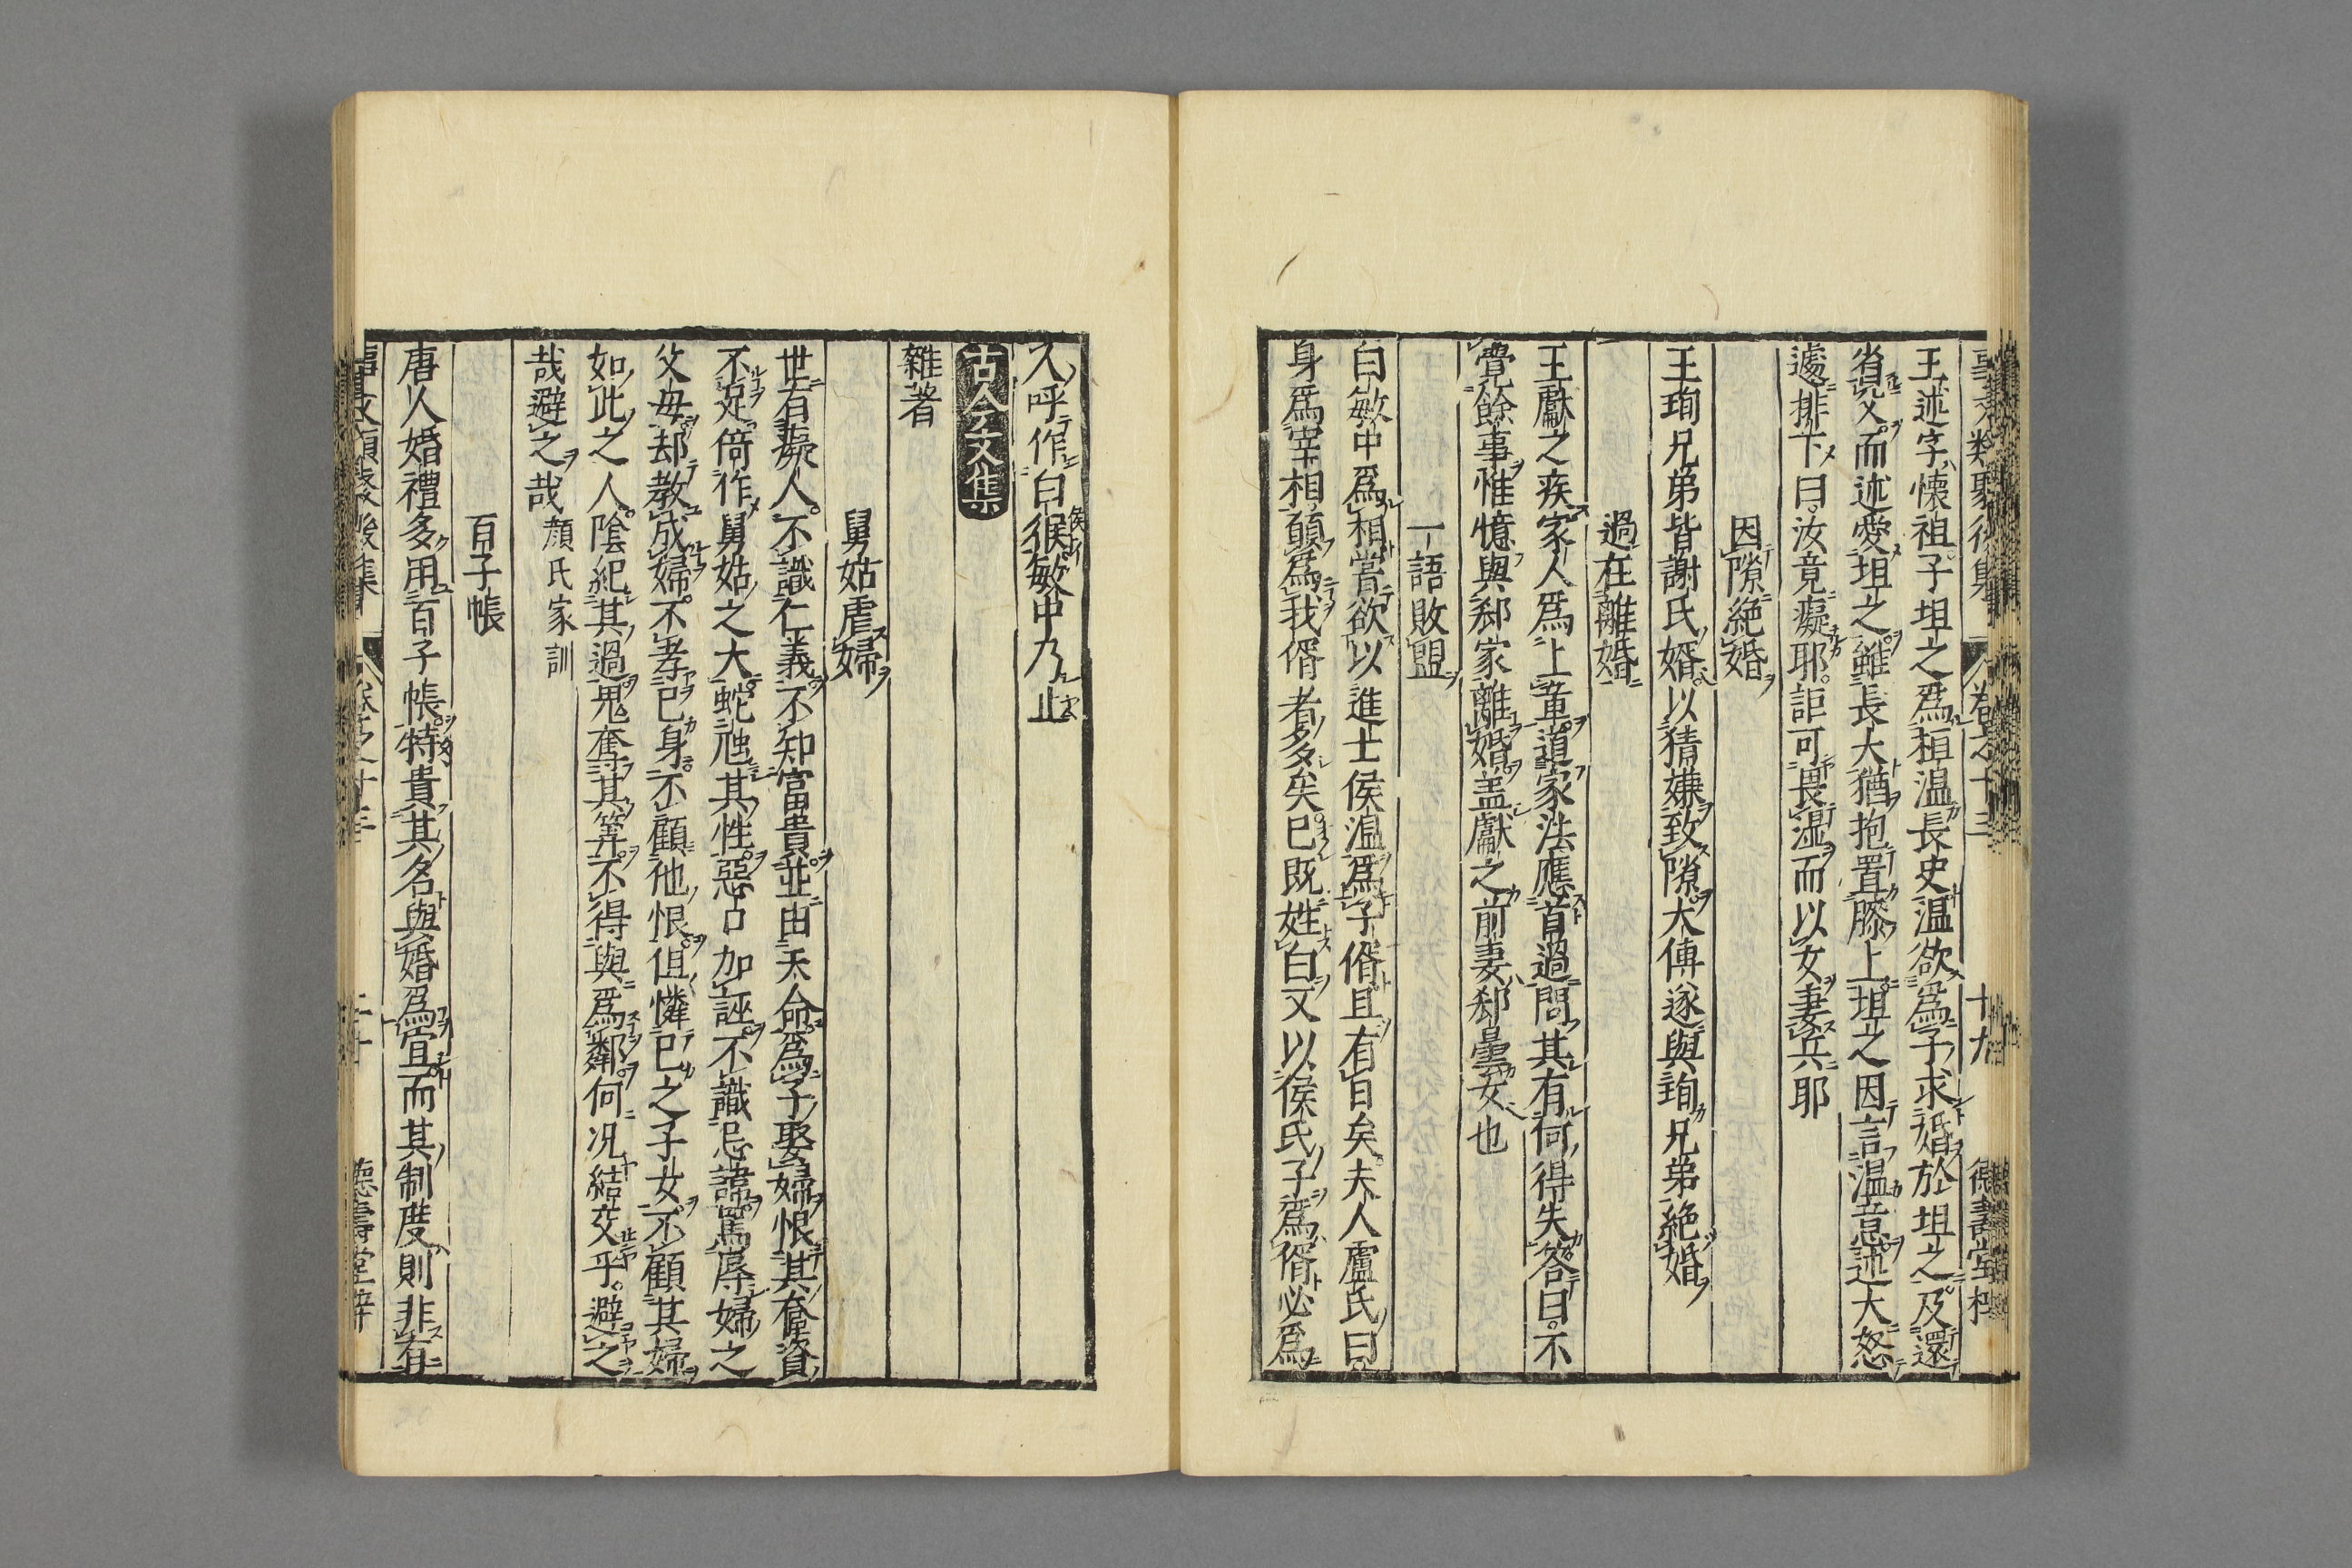 王述字懷祖子坦之爲桓温長史温欲爲子求婚於坦之及還
省父而述愛坦之雖長大猶抱置膝上坦之因言温意述大怒
遽排下曰汝竟癡耶詎可畏温而以女妻兵耶
因隙絶婚
王珣兄弟皆謝氏婿以猜嫌致隙太傅遂與珣兄弟絶婚
過在離婚
王獻之疾家人爲上章道家法應首過問其有何得失答曰不
覺餘事惟憶與郄家離婚盖獻之前妻郄曇女也
一語敗盟
白敏中爲相嘗欲以進士侯温爲子偦且有日矣夫人盧氏曰
身爲宰相願爲我偦者多矣已既姓白又以侯氏子爲偦必爲
人呼作白猴敏中乃止
古今文集
雜著
舅姑虐婦
世有癡人不識仁義不知富貴並由天命爲子娶婦恨其奩資
不足倚作舅姑之大蛇虺其性惡口加誣不識忌諱罵辱婦之
父母却教成婦不孝已身不顧他恨但憐已之子女不顧其婦
如此之人陰紀其過鬼奪其筭不得與爲鄰何况結交乎避之
哉避之哉 顔氏家訓
百子帳
唐人婚禮多用百子帳特貴其名與婚爲宜而其制度則非有